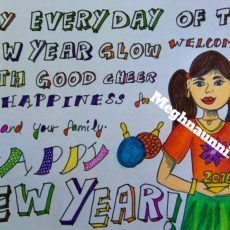 Y EVERYDAY OF T
W YEAR GLOW
WELCOM
TH GOOD CHEER
HAPPINESS for
and your family.
Meghnaunni.
HAPPY
EW YEAR!